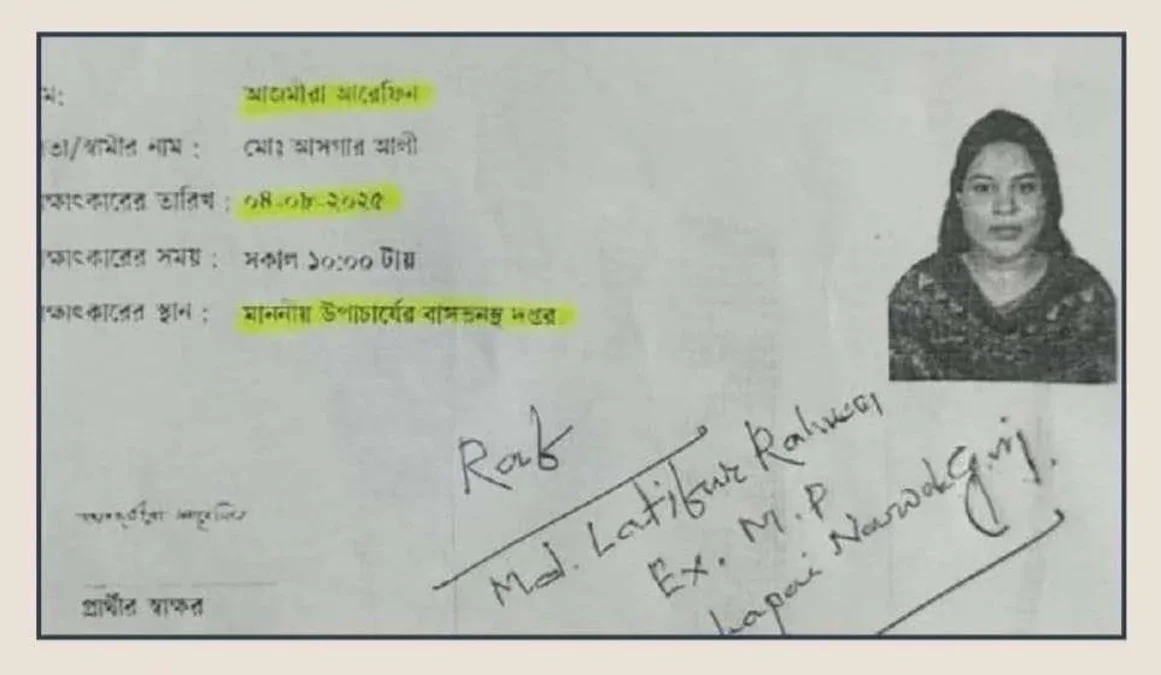 ম: আজমীরা আরেফিন
তা/স্বামীর নাম : মোঃ আসগার আলী
ক্ষাৎকারের তারিখ : ০৪-০৮-২০২৫
ক্ষাৎকারের সময় : সকাল ১০:০০ টায়
ক্ষাৎকারের স্থান : মাননীয় উপাচার্যের বাসভবনস্থ দপ্তর
Md. Latifur Rahman
Ex. M.P
প্রার্থীর স্বাক্ষর